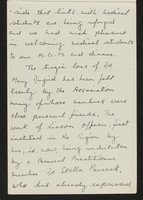 side that links with medical
students are being forged
and we had much pleasure
in welcoming medical students
to our A.G.M. and dinner.
The tragic loss of Dr
Mary Ingrid has been felt
keenly by the Association
many of whose members were
close personal friends. The
work of Liaison Officer, first
instituted in the Region by
her, is now being undertaken
by a General Practitioner
member Dr Stella Pearson,
who has already expressed